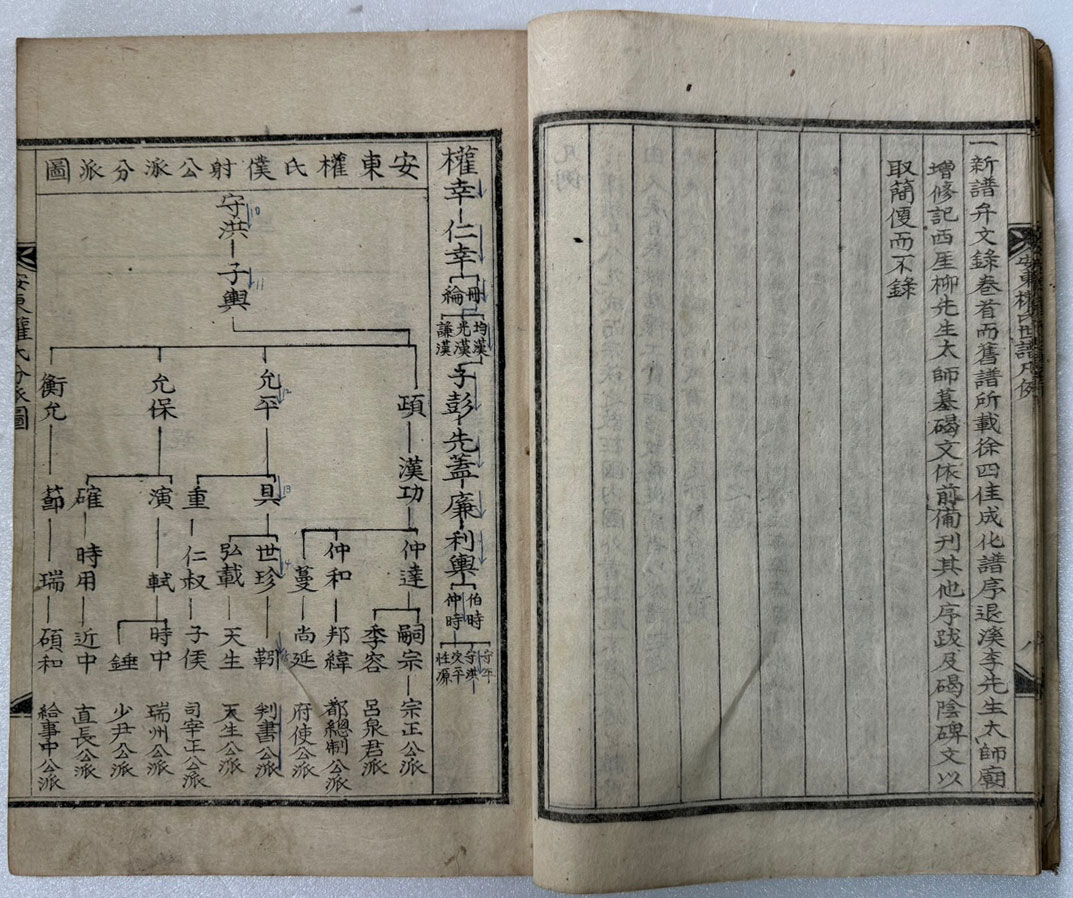 一新譜弁文錄卷首而舊譜所載徐四佳成化譜序退溪李先生太師廟
增修記西厓柳先生太師墓碣文依前備刊其他序跋及碣陰碑文以
取簡便而不錄
安東權氏世譜凡例
八
權幸 仁幸
冊 綸
均漢 光漢 謙漢
子彭 先蓋 廉 利輿
伯時 仲時
守年 守洪
安東權氏僕射公派分派圖
守洪 子輿
10
11
允平 允保 衡允
12
頙 漢功
具 重 演 確 節
13
仲達 仲和 蔓 世珍 弘載 仁叔 軾 時用 瑞
14
嗣宗 季容 邦緯 尚延 靷 天生 子侯 時中 錘 近中 碩和
宗正公派
呂泉君派
都總制公派
府使公派
判書公派
天生公派
司宰正公派
瑞州公派
少尹公派
直長公派
給事中公派
安東權氏分派圖